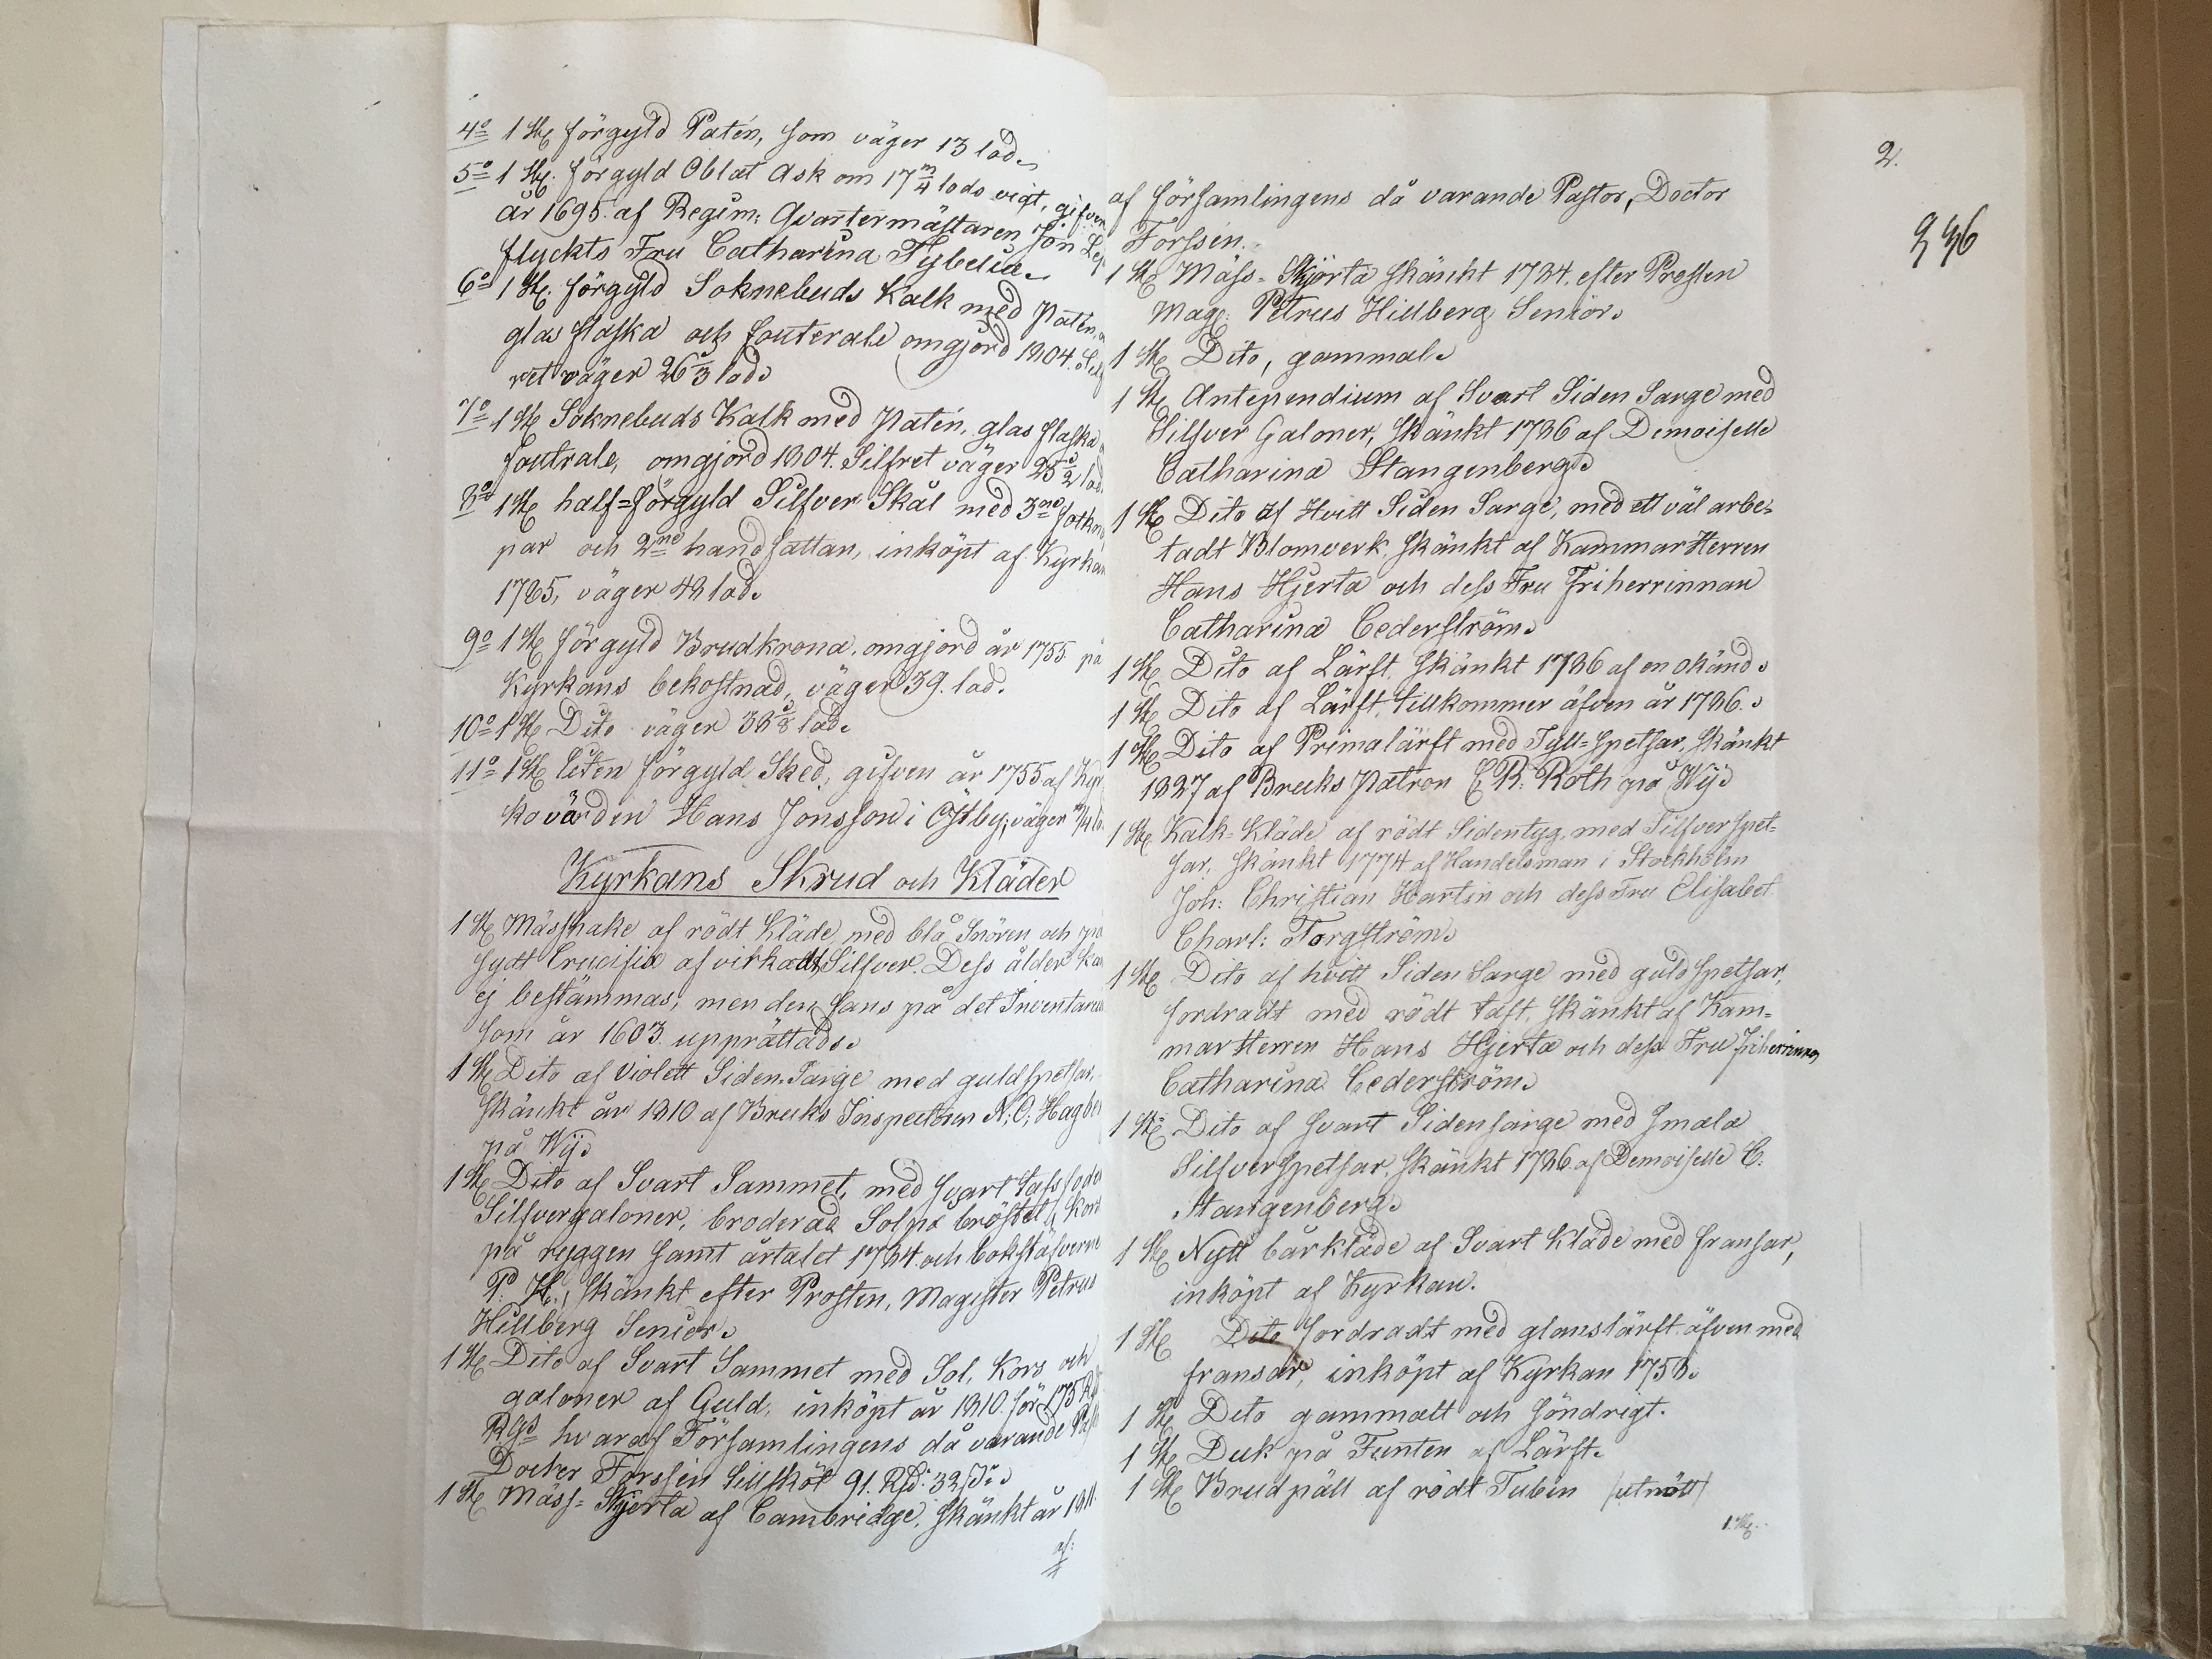 4o 1 St. förgyld Patén, som väger 13 lod.
5o 1 St. förgyld Oblat Ask om 17 m/4 lods vigt, gifven
år 1695. af Regim: Qvartermästaren Jön
flyckts Fru Catharina Tybelia.
6o 1 St. förgyld Soknebuds Kalk med Patén,
glas flaska och fouterale omgjord 1804.
ret väger 26 2/3 lod.
7o 1 St Soknebuds Kalk med Patén, glas flaska
foutrale, omgjord 1804. Silfret väger 25 1/2 lod.
8o 1 St half=förgyld Silfver Skål med 3ne
par och 2ne handfattan, inköpt af Kyrkan
1785, väger 48 lod.
9o 1 St förgyld Brudkrona, omgjord år 1755 på
Kyrkans bekostnad, väger 39. lod.
10o 1 St Dito väger lod.
11o 1 St liten förgyld Sked, gifven år 1755 af Kyr
kovärden Hans Jonsson i Östby, väger
Kyrkans Skrud och Kläder
1 St Mässhake af rödt Kläde med blå Snören och på
sydt Crucifix af virkadt Silfver. Dess ålder kan
ej bestämmas, men den fans på det Inventarium
som år 1603 upprättads.
1 St Dito af Violett Siden Sarge med guldspetsar,
skänkt år 1810 af Bruks Inspectoren N: O: Hagber
på Wij.
1 St Dito af Svart Sammet, med svart
Silfvergaloner, broderad Sol på bröstet & Kors
på ryggen samt årtalet 1784 och bokstäfverne
P: H:, skänkt efter Prosten, Magister Petrus
Hillberg Senior.
1 St Dito af Svart Sammet med Sol, Kors och
galoner af Guld, inköpt år 1810. för 175 R
RGs hvaraf Församlingens då varande
Docter Forssén tillsköt 91. Rd: 32 s.
1 St Mäss=Skjorta af Cambridge, skänkt år 181
af:
2.
936
af församlingens då varande Pastor, Doctor
Forssén.
1 St Mäss-Skjorta skänkt 1784. efter Prosten
Mag: Petrus Hillberg Senior.
1 St Dito, gammal.
1 St Antependium af Svart Siden Sarge med
Silfver Galoner, skänkt 1786 af Demoiselle
Catharina Stangenberg.
1 St Dito af Hvitt Siden Sarge, med ett väl arbe-
tadt Blomverk, skänkt af Kammar Herren
Hans Hjerta och dess Fru Friherrinnan
Catharina Cederström.
1 St Dito af Lärft, skänkt 1786 af en okänd.
1 St Dito af Lärft, tillkommer äfven år 1786.
1 St Dito af Primalärft med Tyll=spetsar, skänkt
1827 af Bruks Patron E. R: Roth på Wij.
1 St Kalk=Kläde af rödt Sidentyg, med Silfver spet=
sar, skänkt 1774 af Handelsman i Stockholm
Joh: Christian Martin och dess Fru Elisabet
Charl: Torgström.
1 St Dito af hvitt Siden Sarge med guld spetsar,
fordradt med rödt taft, skänkt af Kam=
mar Herren Hans Hjerta och dess Fru Friherrinnan
Catharina Cederström.
1 St Dito af svart Sidensarge med smala
Silfverspetsar, skänkt 1786 af Demoiselle C.
Stangenberg.
1 St Nytt bårkläde af Svart Kläde med fransar,
inköpt af Kyrkan.
1 St Dito fordradt med glanslärft äfven med
fransar, inköpt af Kyrkan 1758.
1 St Dito gammalt och söndrigt.
1 St Duk på Funten af Lärft.
1 St Brudpäll af rödt Tubin /utnött/
1. St.